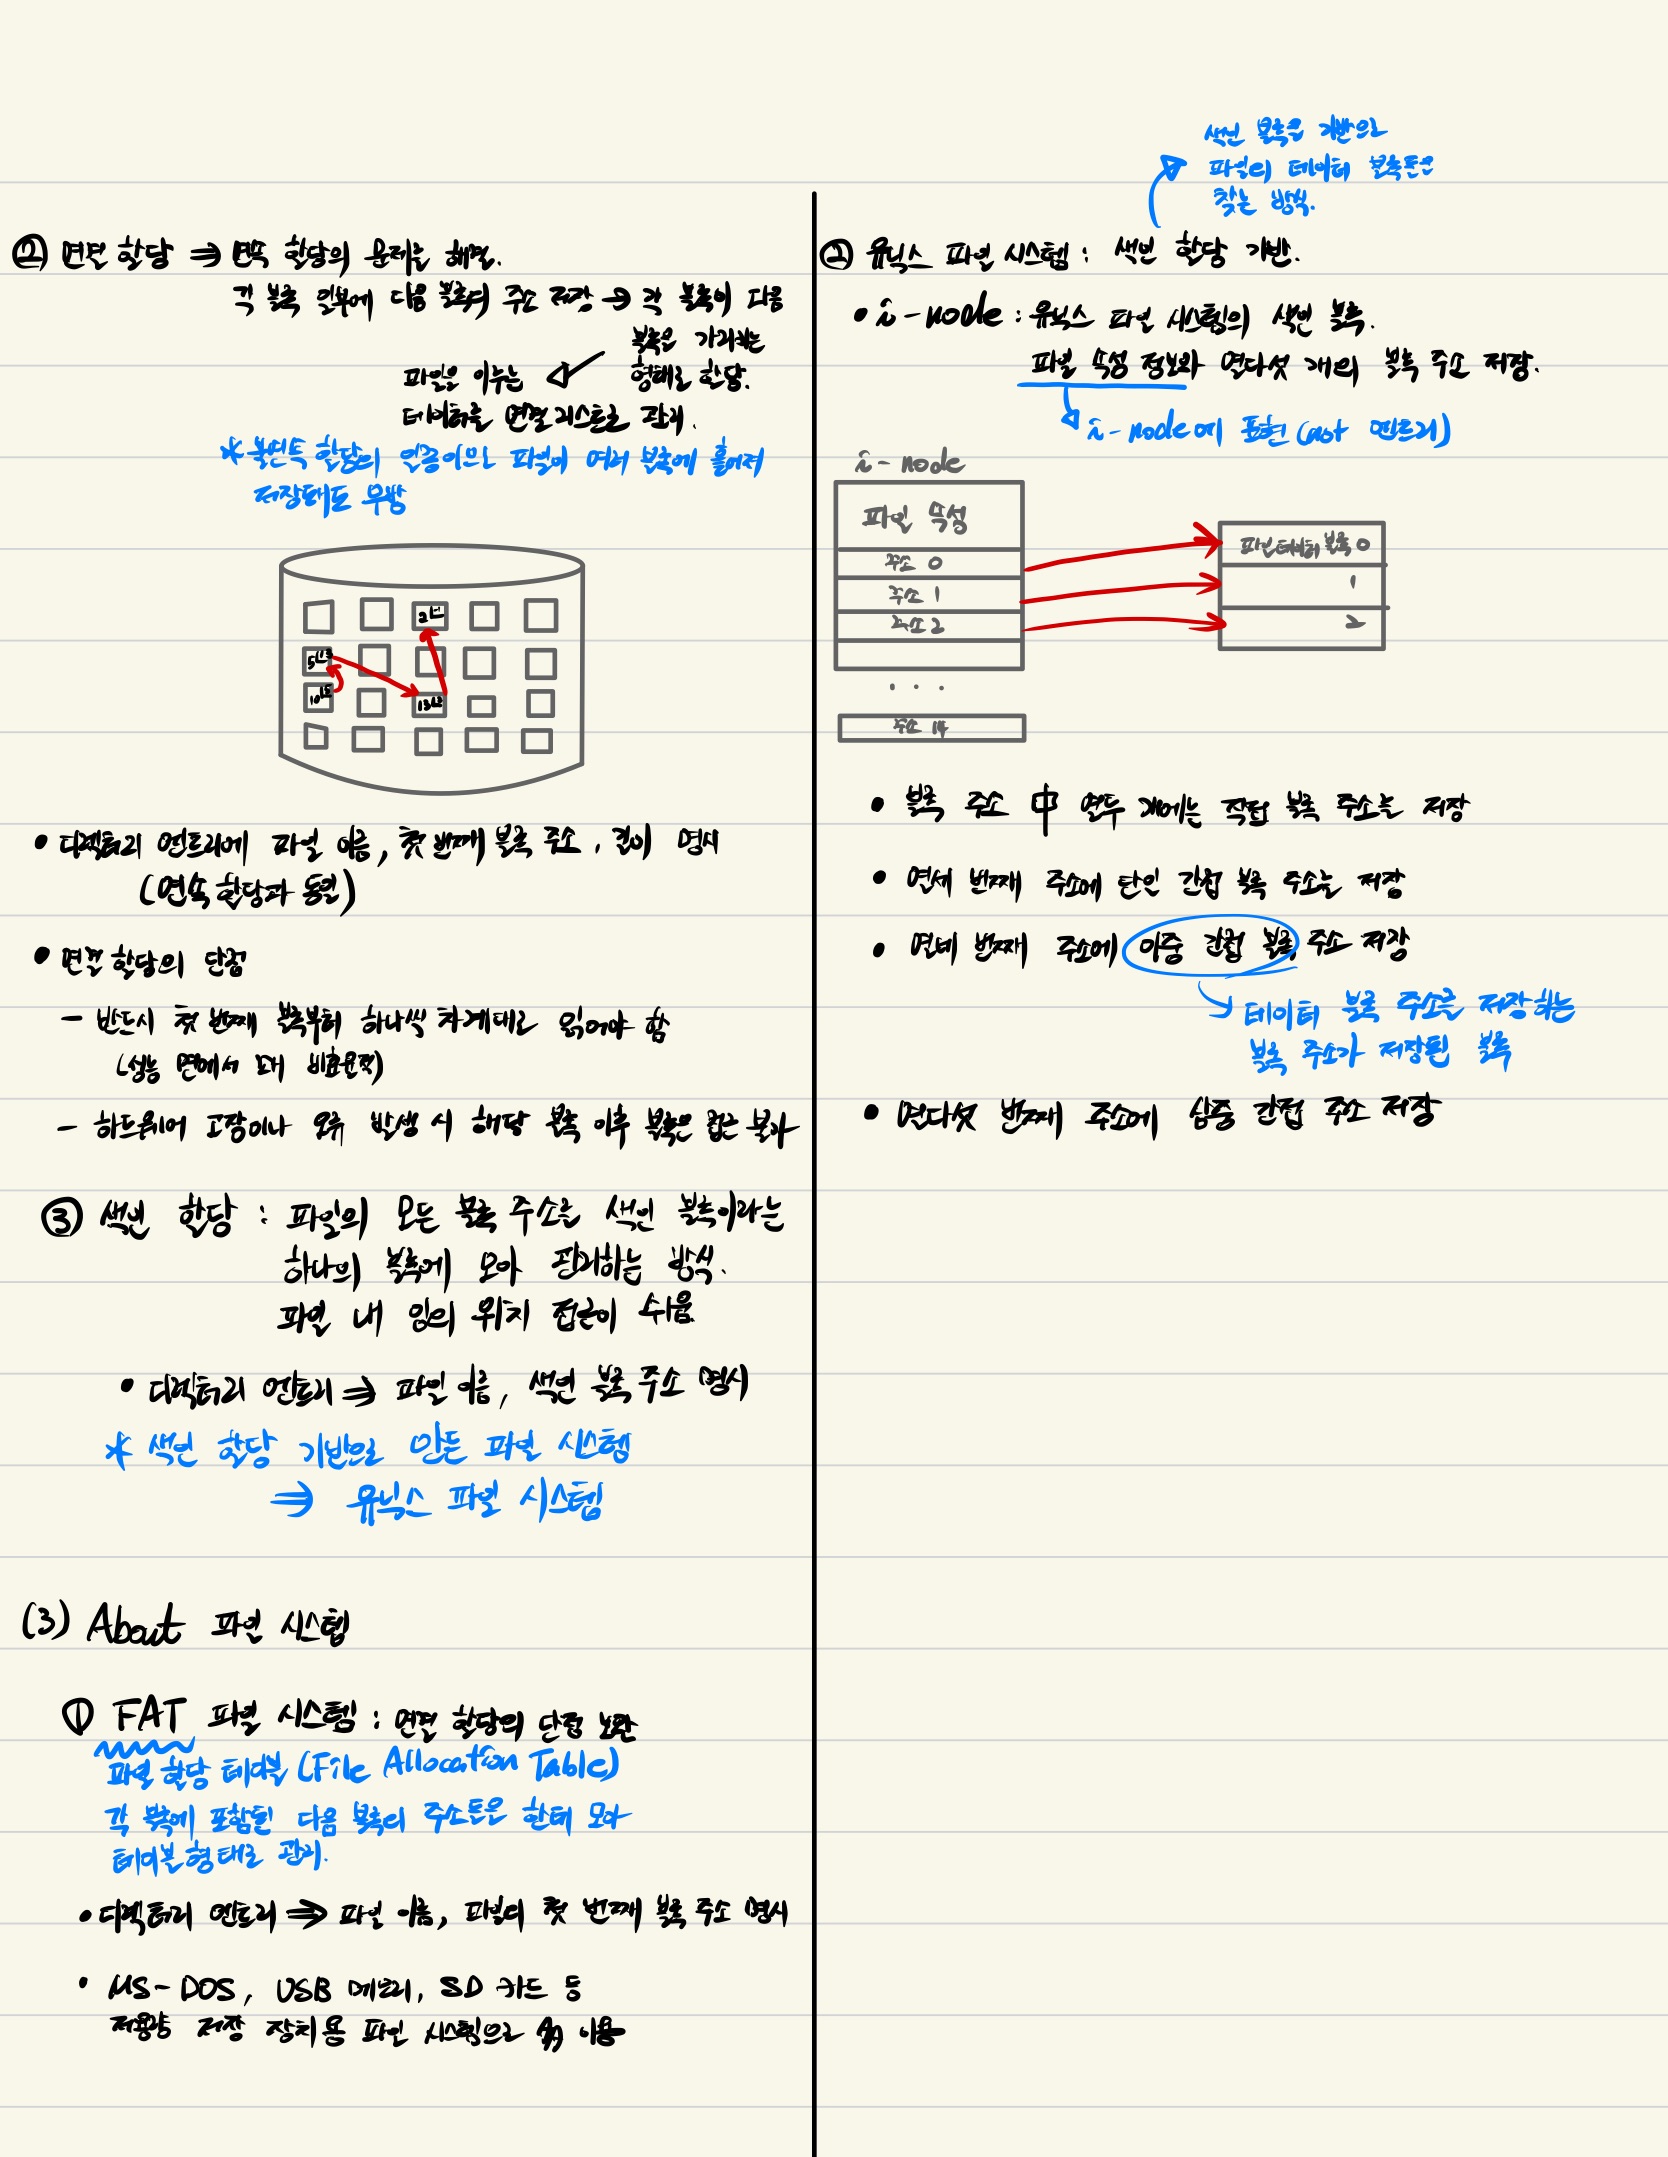 ② 연결 할당 ⇒ 연속 할당의 문제를 해결.
각 블록 일부에 다음 블록의 주소 저장 → 각 블록이 다음
블록을 가리키는
형태로 할당.
파일을 이루는
데이터를 연결 리스트로 관리.
* 불연속 할당의 일종이므로 파일이 여러 블록에 흩어져
저장돼도 무방
2
5 13
10 5
13 2
• 디렉터리 엔트리에 파일 이름, 첫 번째 블록 주소, 길이 명시
(연속 할당과 동일)
• 연결 할당의 단점
- 반드시 첫 번째 블록부터 하나씩 차례대로 읽어야 함
(성능 면에서 매우 비효율적)
- 하드웨어 고장이나 오류 발생 시 해당 블록 이후 블록은 접근 불가
③ 색인 할당 : 파일의 모든 블록 주소를 색인 블록이라는
하나의 블록에 모아 관리하는 방식.
파일 내 임의 위치 접근이 쉬움
• 디렉터리 엔트리 ⇒ 파일 이름, 색인 블록 주소 명시
* 색인 할당 기반으로 만든 파일 시스템
⇒ 유닉스 파일 시스템
(3) About 파일 시스템
① FAT 파일 시스템 : 연결 할당의 단점 보완
파일 할당 테이블 (File Allocation Table)
각 블록에 포함된 다음 블록의 주소들은 한데 모아
테이블 형태로 관리.
• 디렉터리 엔트리 ⇒ 파일 이름, 파일의 첫 번째 블록 주소 명시
• MS-DOS, USB 메모리, SD 카드 등
저용량 저장 장치용 파일 시스템으로 이용
색인 블록을 기반으로
파일의 데이터 블록들을
찾는 방식.
② 유닉스 파일 시스템 : 색인 할당 기반.
• i-node : 유닉스 파일 시스템의 색인 블록.
파일 속성 정보와 열다섯 개의 블록 주소 저장.
i-node에 표현 (not 엔트리)
i-node
파일 속성
주소 0
주소 1
주소 2
...
주소 14
파일 데이터 블록 0
1
2
• 블록 주소 中 열두 개에는 직접 블록 주소를 저장
• 열세 번째 주소에 단일 간접 블록 주소를 저장
• 열네 번째 주소에 이중 간접 블록 주소 저장
데이터 블록 주소를 저장하는
블록 주소가 저장된 블록
• 열다섯 번째 주소에 삼중 간접 주소 저장